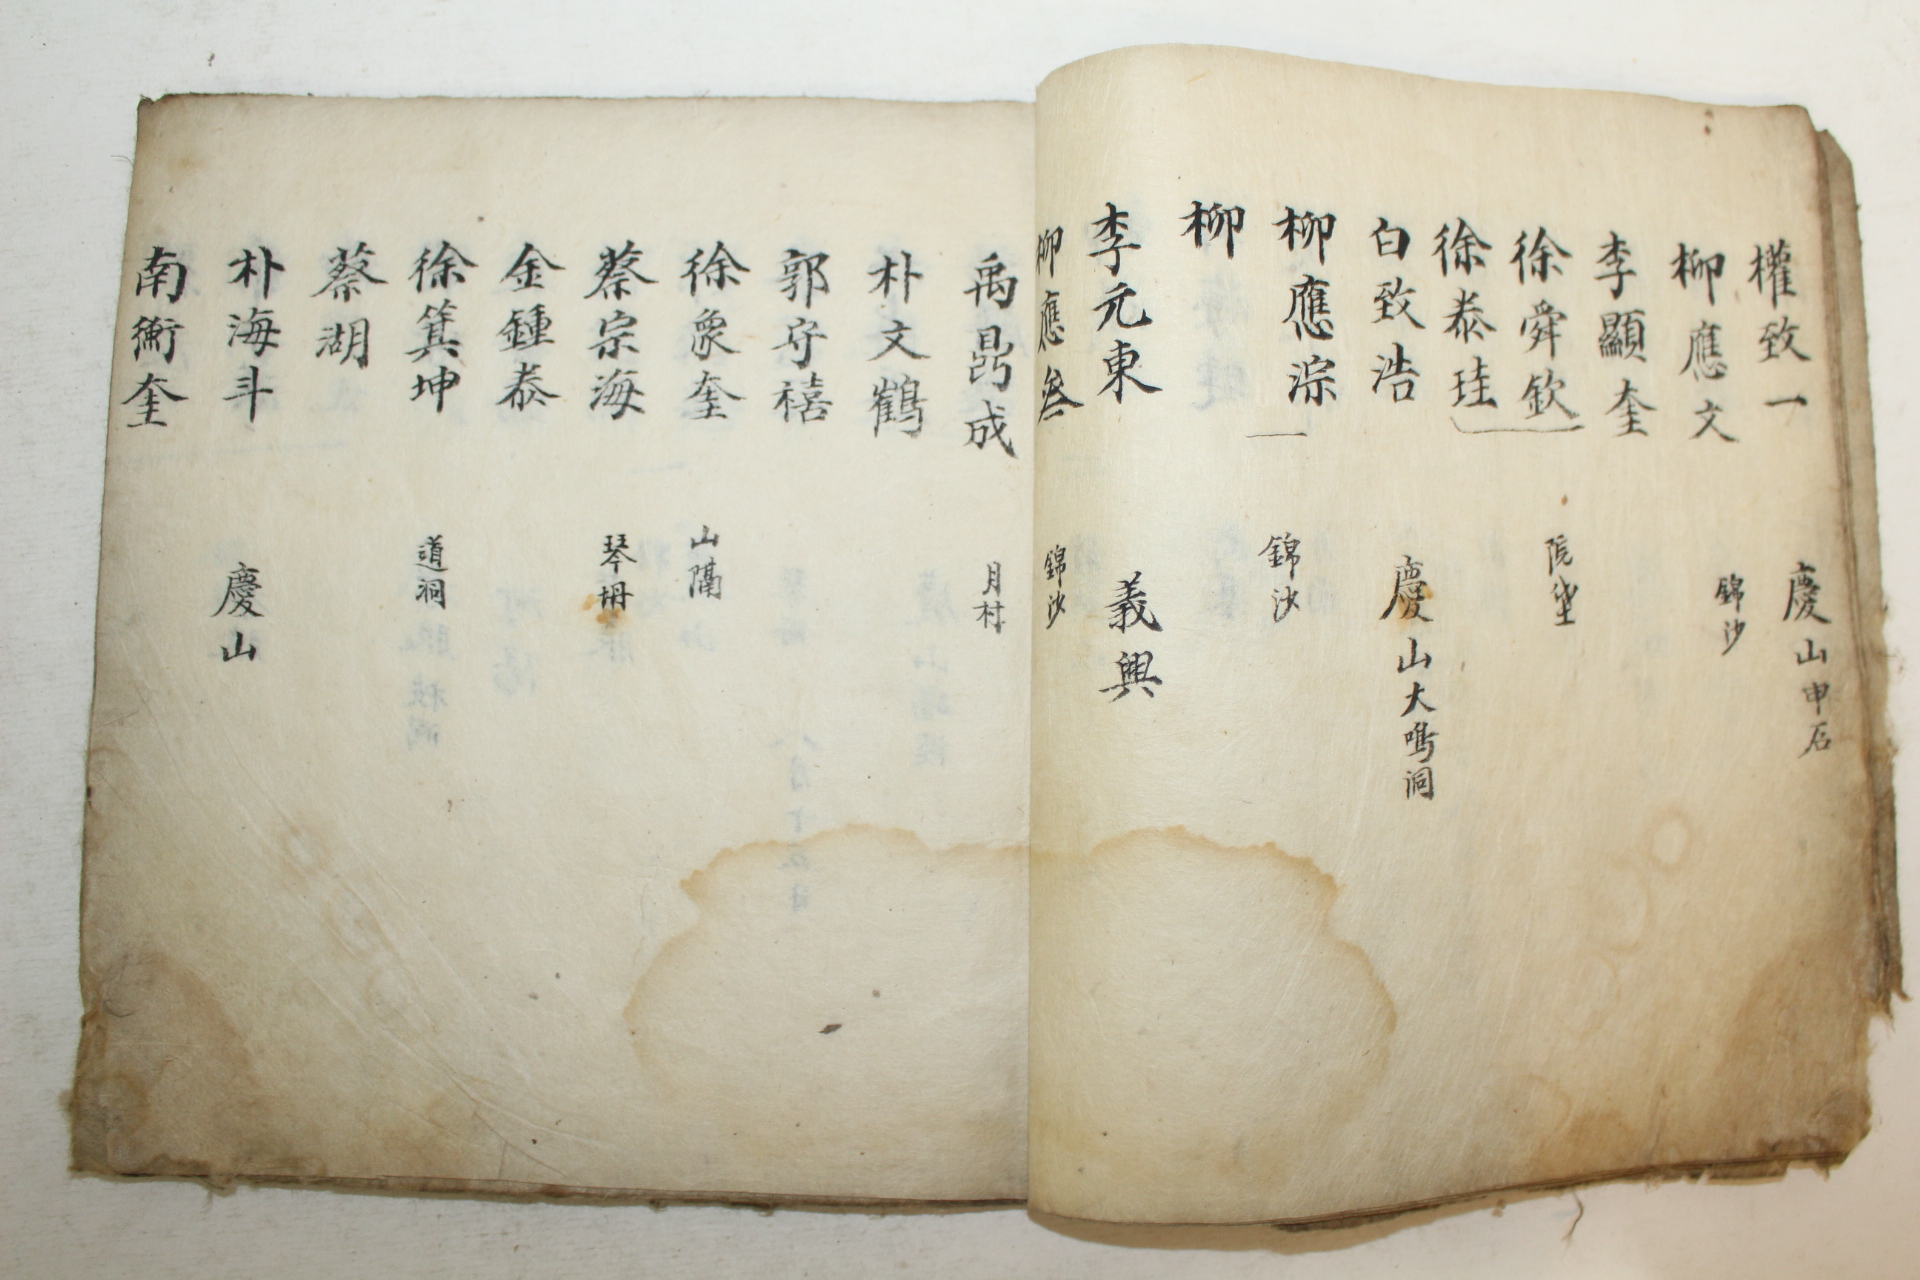 權致一 慶山申石
柳應文 錦沙
李顯奎
徐舜欽 院垈
徐泰珪
白致浩 慶山大鳴洞
柳應淙 錦沙
柳
李元東 義興
柳應叅 錦沙
禹昺成 月村
朴文鶴
郭守禧
徐象奎 山隔
蔡宗海 琴坍
金鍾泰
徐箕坤 道洞
蔡湖
朴海斗 慶山
南衡奎